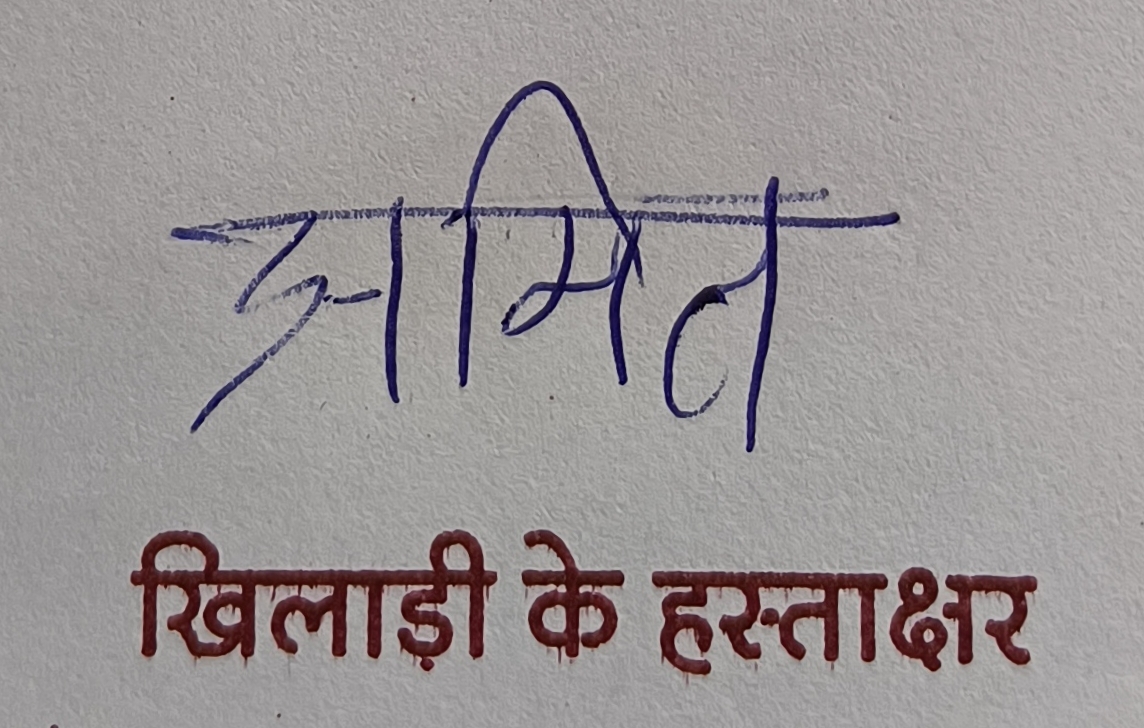 अमित
खिलाड़ी के हस्ताक्षर